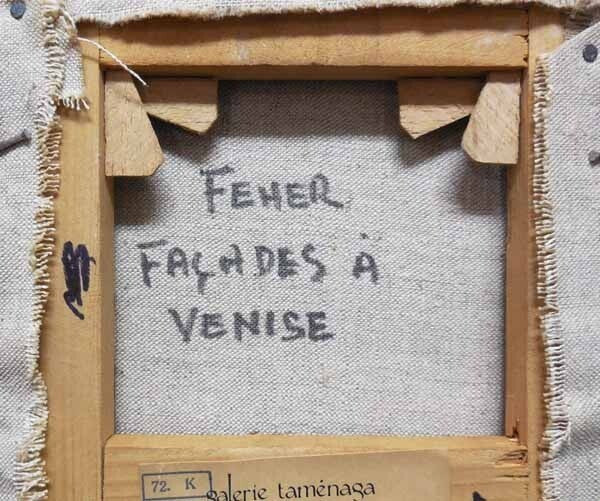 FEHER
FAÇADES À
VENISE
72. K
galerie taménaga